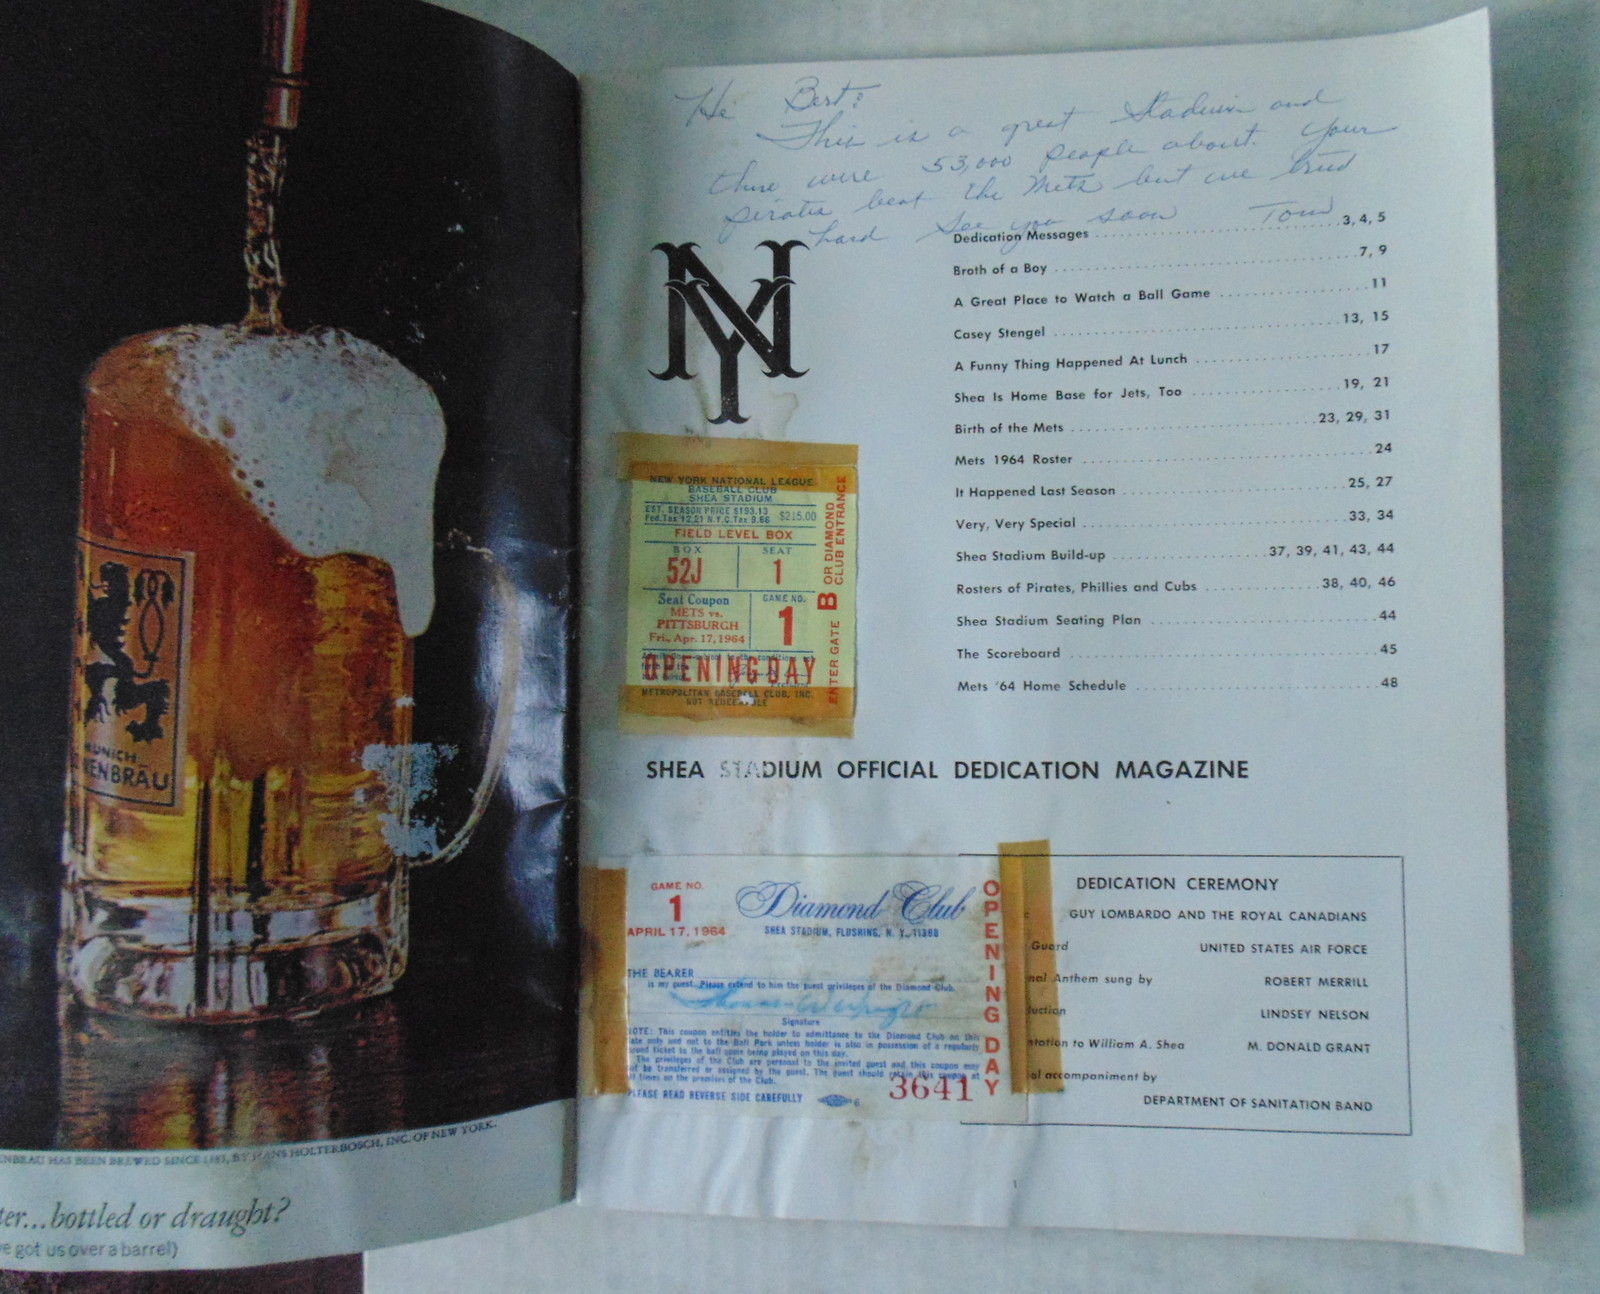 MUNICH
ENBRÄU HAS BEEN BREWED SINCE 1383, BY HANS HOLTERBOSCH, INC. OF NEW YORK.
ter...bottled or draught?
've got us over a barrel)
He Bert:
This is a great Stadium and
there were 53,000 people about. Your
pirates beat the Mets but we tried
hard See you soon Tom
NY
Dedication Messages 3, 4, 5
Broth of a Boy 7, 9
A Great Place to Watch a Ball Game 11
Casey Stengel 13, 15
A Funny Thing Happened At Lunch 17
Shea Is Home Base for Jets, Too 19, 21
Birth of the Mets 23, 29, 31
Mets 1964 Roster 24
It Happened Last Season 25, 27
Very, Very Special 33, 34
Shea Stadium Build-up 37, 39, 41, 43, 44
Rosters of Pirates, Phillies and Cubs 38, 40, 46
Shea Stadium Seating Plan 44
The Scoreboard 45
Mets '64 Home Schedule 48
NEW YORK NATIONAL LEAGUE
BASEBALL CLUB
SHEA STADIUM
EST. SEASON PRICE $193.13
Fed.Tax 12.21 N.Y.C.Tax 9.66 $215.00
FIELD LEVEL BOX
BOX SEAT
52J 1
Seat Coupon GAME NO.
METS vs.
PITTSBURGH 1
Fri., Apr. 17, 1964
OPENING DAY
METROPOLITAN BASEBALL CLUB, INC.
NOT REDEEMABLE
ENTER GATE B OR DIAMOND
CLUB ENTRANCE
SHEA STADIUM OFFICIAL DEDICATION MAGAZINE
GAME NO.
1
APRIL 17, 1964
Diamond Club
SHEA STADIUM, FLUSHING, N. Y. 11368
THE BEARER
is my guest. Please extend to him the guest privileges of the Diamond Club.
Signature
NOTE: This coupon entitles the holder to admittance to the Diamond Club on this
date only and not to the Ball Park unless holder is also in possession of a regularly
issued ticket to the ball game being played on this day.
The privileges of the Club are personal to the invited guest and this coupon may
not be transferred or assigned by the guest. The guest should retain this coupon at
all times on the premises of the Club.
PLEASE READ REVERSE SIDE CAREFULLY 6
3641
OPENING DAY
DEDICATION CEREMONY
GUY LOMBARDO AND THE ROYAL CANADIANS
Guard UNITED STATES AIR FORCE
nal Anthem sung by ROBERT MERRILL
duction LINDSEY NELSON
ntation to William A. Shea M. DONALD GRANT
al accompaniment by
DEPARTMENT OF SANITATION BAND